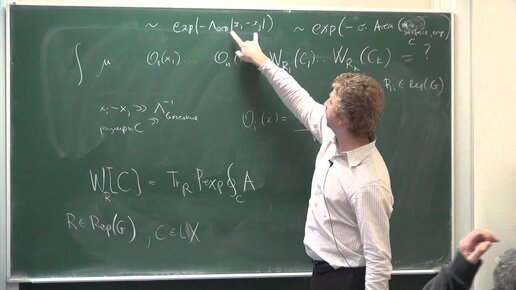 ~ exp(-Λ |x₁-x₂|) ~ exp(-σ Area(
surface,
C
∫ μ O₁(x₁)... Oₙ( W_R₁(C₁)... W_Rₖ(Cₖ) = ?
Rᵢ ∈ Rep(G)
xᵢ-xⱼ >> Λ⁻¹
размеры C >>
Oᵢ(x) =
W_R[C] = Tr_R Pexp ∮_C A
R ∈ Rep(G) , C ∈ LX